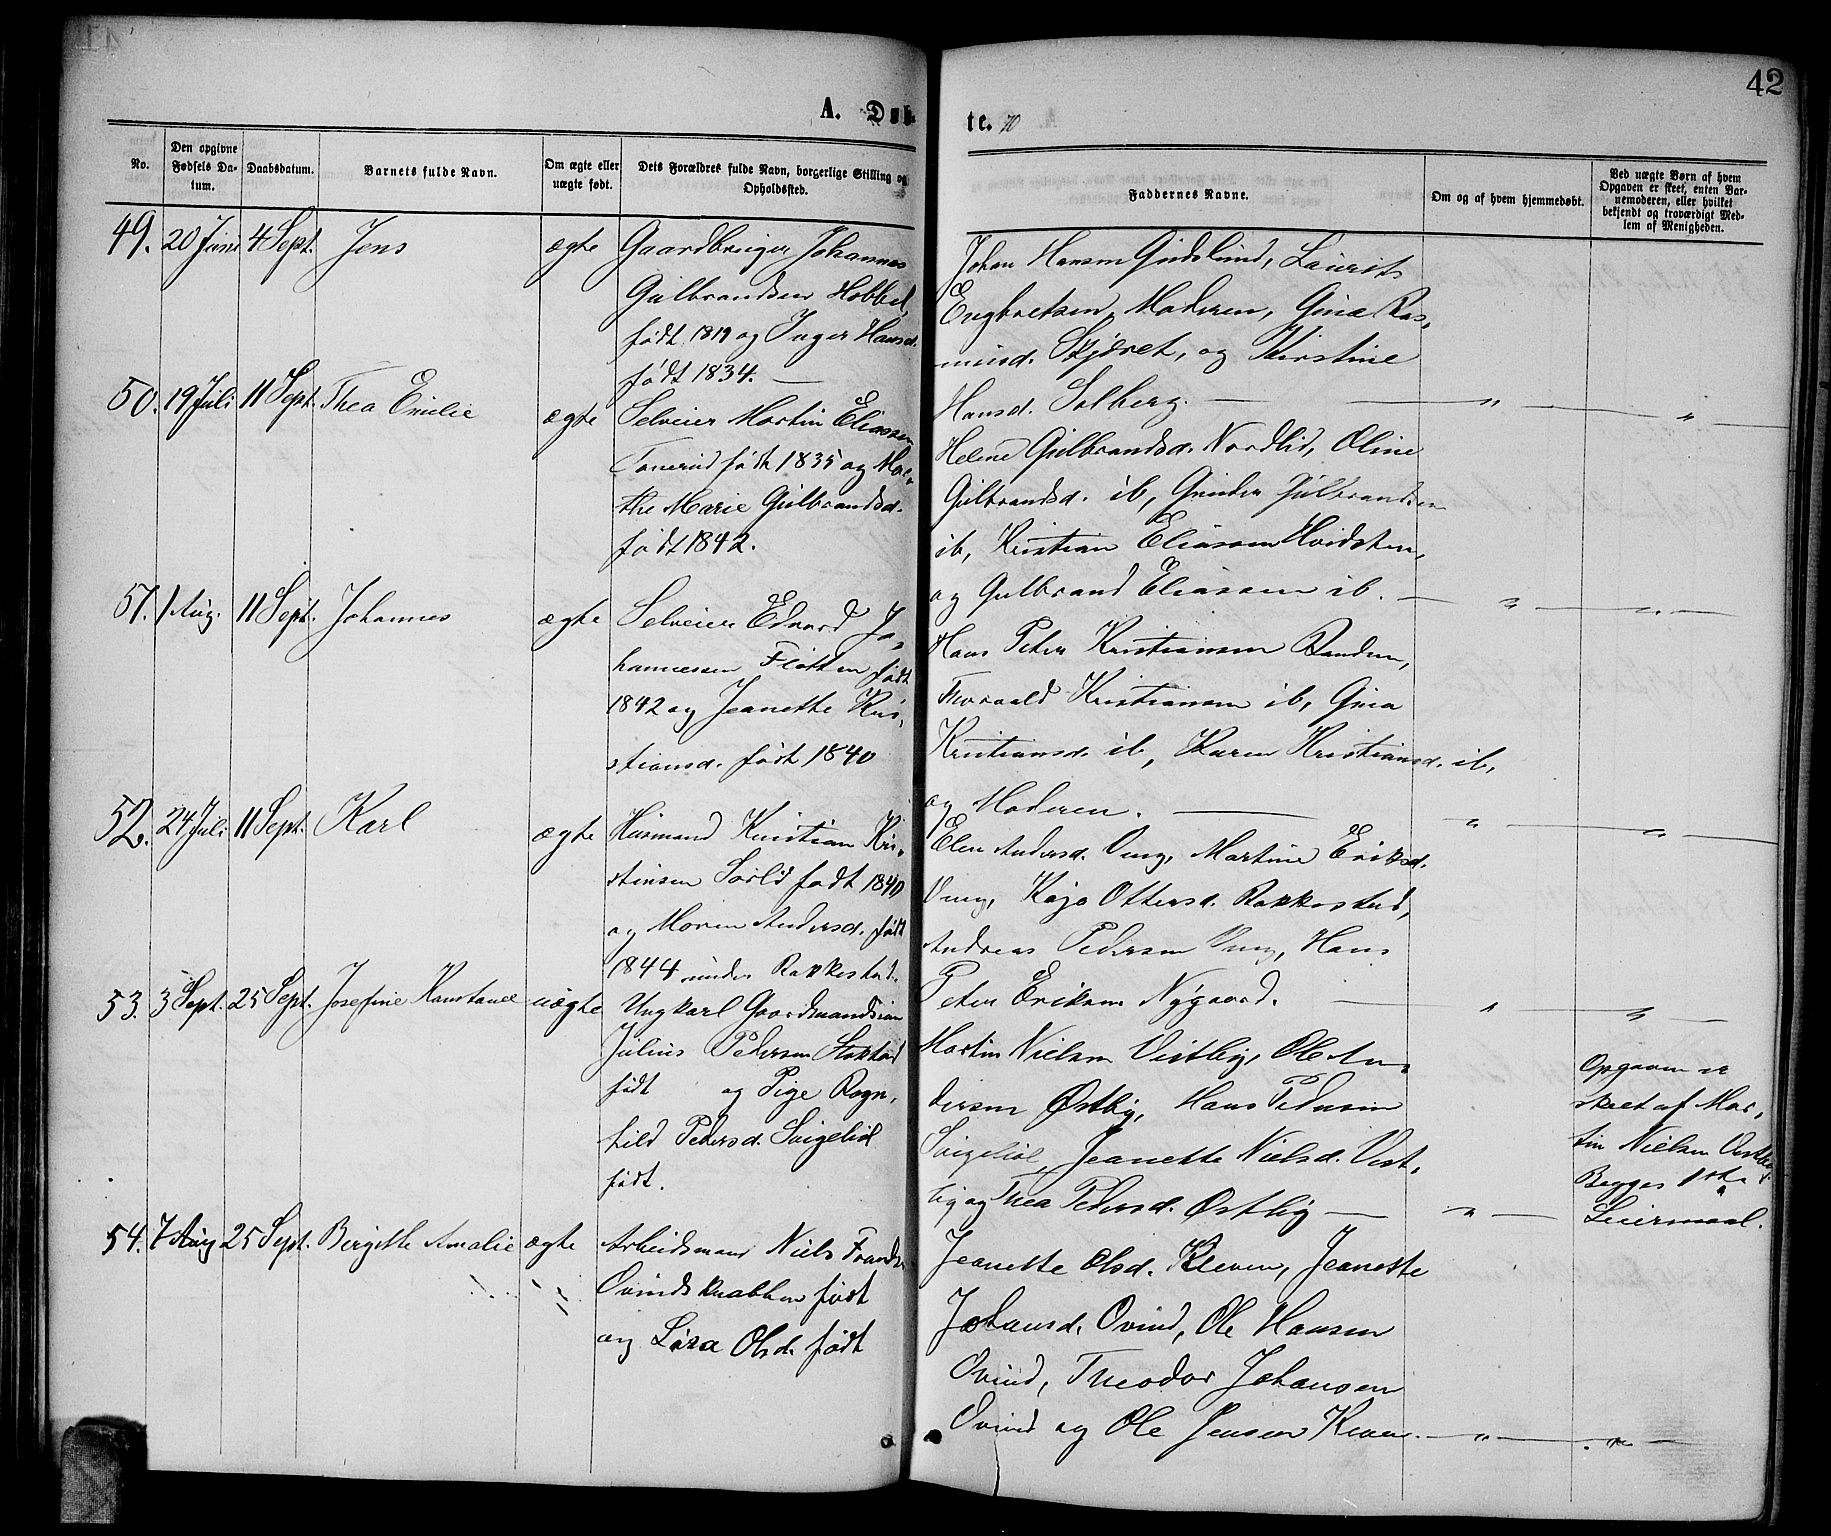 42
A. Døb-
te.
No.
Den opgivne Fødsels Datum.
Daabsdatum.
Barnets fulde Navn.
Om ægte eller uægte født.
Dets Forældres fulde Navn, borgerlige Stilling og Opholdssted.
Faddernes Navne.
Om og af hvem hjemmedøbt.
Ved uægte Børn af hvem Opgaven er skeet, enten Barnemoderen, eller hvilket bekjendt og troværdigt Medlem af Menigheden.
49. 20 Juni 4 Sept. Jens ægte Gaardbruger Johannes
Gulbrandsen Hobbel,
født 1819 og Inger Hansd.
født 1834. —
Johan Hansen Gudslund, Laurits
Engbretsen, Moderen, Gina Ras-
musd. Skjøret, og Kirstine
Hansd. Solberg. — " — "
50. 19 Juli 11 Sept. Thea Emilie ægte Selveier Martin Eliassen
Tonerud født 1835 og Mar-
the Marie Gulbrandsd.
født 1842.
Helene Gulbrandsd. Nordlid, Oline
Gulbrandsd. ib, Gunder Gulbrandsen
ib, Kristian Eliassen Hvidsten,
og Gulbrand Eliassen ib. — " — " —
51. 1 Aug. 11 Sept. Johannes ægte Selveier Edvard Jo-
hannessen Fløtten født
1842 og Jeanette Kri-
stiansd. født 1840
Hans Peter Kristiansen Randem,
Thorvald Kristiansen ib, Gina
Kristiansd. ib, Karen Kristiansd. ib,
og Moderen. — " — " —
52. 24 Juli 11 Sept. Karl ægte Husmand Kristian Kri-
stensen Sorlid født 1840
og Maren Andersd. født
1844 under Rakkestad.
Elen Andersd. Vang, Martine Eriksd.
Vang, Kaja Ottersd. Rakkestad,
Andreas Pedersen Vang, Hans
Peter Eriksen Nygaard. — " — " —
53. 3 Sept. 25 Sept. Josefine Konstance uægte Ungkarl Gaardmandssøn
Julius Pedersen
født og Pige Rogn-
hild Pedersd. Svigelsøl
født.
Martin Nielsen Vestby, Ole An-
dersen Østby, Hans Pedersen
Svigelsøl, Jeanette Nielsd. Vest-
by og Thea Pedersd. Østby — " —
Opgaven er
skeet af Mar-
tin Nielsen Vestby
Begges 1ste
Leiermaal.
54. 7 Aug 25 Sept. Birgitte Amalie ægte Arbeidsmand Niels Frands.
Ovindsknabben født
og Lisa Olsd. født
Jeanette Olsd. Kleven, Jeanette
Johansd. Ovind, Ole Hansen
Ovind, Theodor Johansen
Ovind og Ole Jensen — " — " —